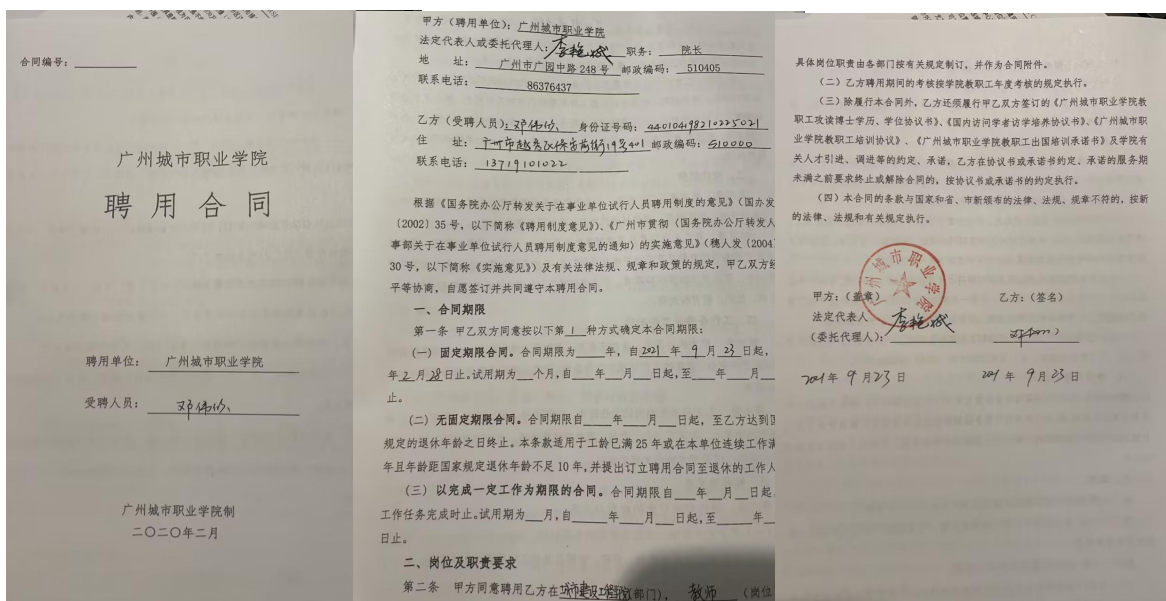 合同编号：
广州城市职业学院
聘用合同
聘用单位： 广州城市职业学院
受聘人员： 邓伟
广州城市职业学院制
二〇二〇年二月
甲方（聘用单位）：广州城市职业学院
法定代表人或委托代理人：李艳娥 职务： 院长
地 址： 广州市广园中路248号 邮政编码： 510405
联系电话： 86376437
乙方（受聘人员）：邓伟 身份证号码：440104198210225021
住 址： 广州市越秀区保安前街19号401 邮政编码：510000
联系电话： 13719101022
根据《国务院办公厅转发关于在事业单位试行人员聘用制度的意见》（国办发
〔2002〕35号，以下简称《聘用制度意见》）、《广州市贯彻〈国务院办公厅转发人
事部关于在事业单位试行人员聘用制度意见的通知〉的实施意见》（穗人发〔2004〕
30号，以下简称《实施意见》）及有关法律法规、规章和政策的规定，甲乙双方经
平等协商，自愿签订并共同遵守本聘用合同。
一、合同期限
第一条 甲乙双方同意按以下第 1 种方式确定本合同期限：
（一）固定期限合同。合同期限为 年，自2021年9月23日起，
年2月28日止。试用期为 个月，自 年 月 日起，至 年 月
止。
（二）无固定期限合同。合同期限自 年 月 日起，至乙方达到国
规定的退休年龄之日终止。本条款适用于工龄已满25年或在本单位连续工作满
年且年龄距国家规定退休年龄不足10年，并提出订立聘用合同至退休的工作人
（三）以完成一定工作为期限的合同。合同期限自 年 月 日起
工作任务完成时止。试用期为 月，自 年 月 日起，至 年
日止。
二、岗位及职责要求
第二条 甲方同意聘用乙方在城市建设工程学院（部门）， 教师 （岗位
具体岗位职责由各部门按有关规定制订，并作为合同附件。
（二）乙方聘用期间的考核按学院教职工年度考核的规定执行。
（三）除履行本合同外，乙方还须履行甲乙双方签订的《广州城市职业学院教
职工攻读博士学历、学位协议书》、《国内访问学者访学培养协议书》、《广州城市职
业学院教职工培训协议》、《广州城市职业学院教职工出国培训承诺书》及学院有
关人才引进、调进等的约定、承诺，乙方在协议书或承诺书约定、承诺的服务期
未满之前要求终止或解除合同的，按协议书或承诺书的约定执行。
（四）本合同的条款与国家和省、市新颁布的法律、法规、规章不符的，按新
的法律、法规和有关规定执行。
广州城市职业学院
甲方：（盖章） 乙方：（签名）
法定代表人
（委托代理人）： 李艳娥
2021年9月23日 2021年9月23日